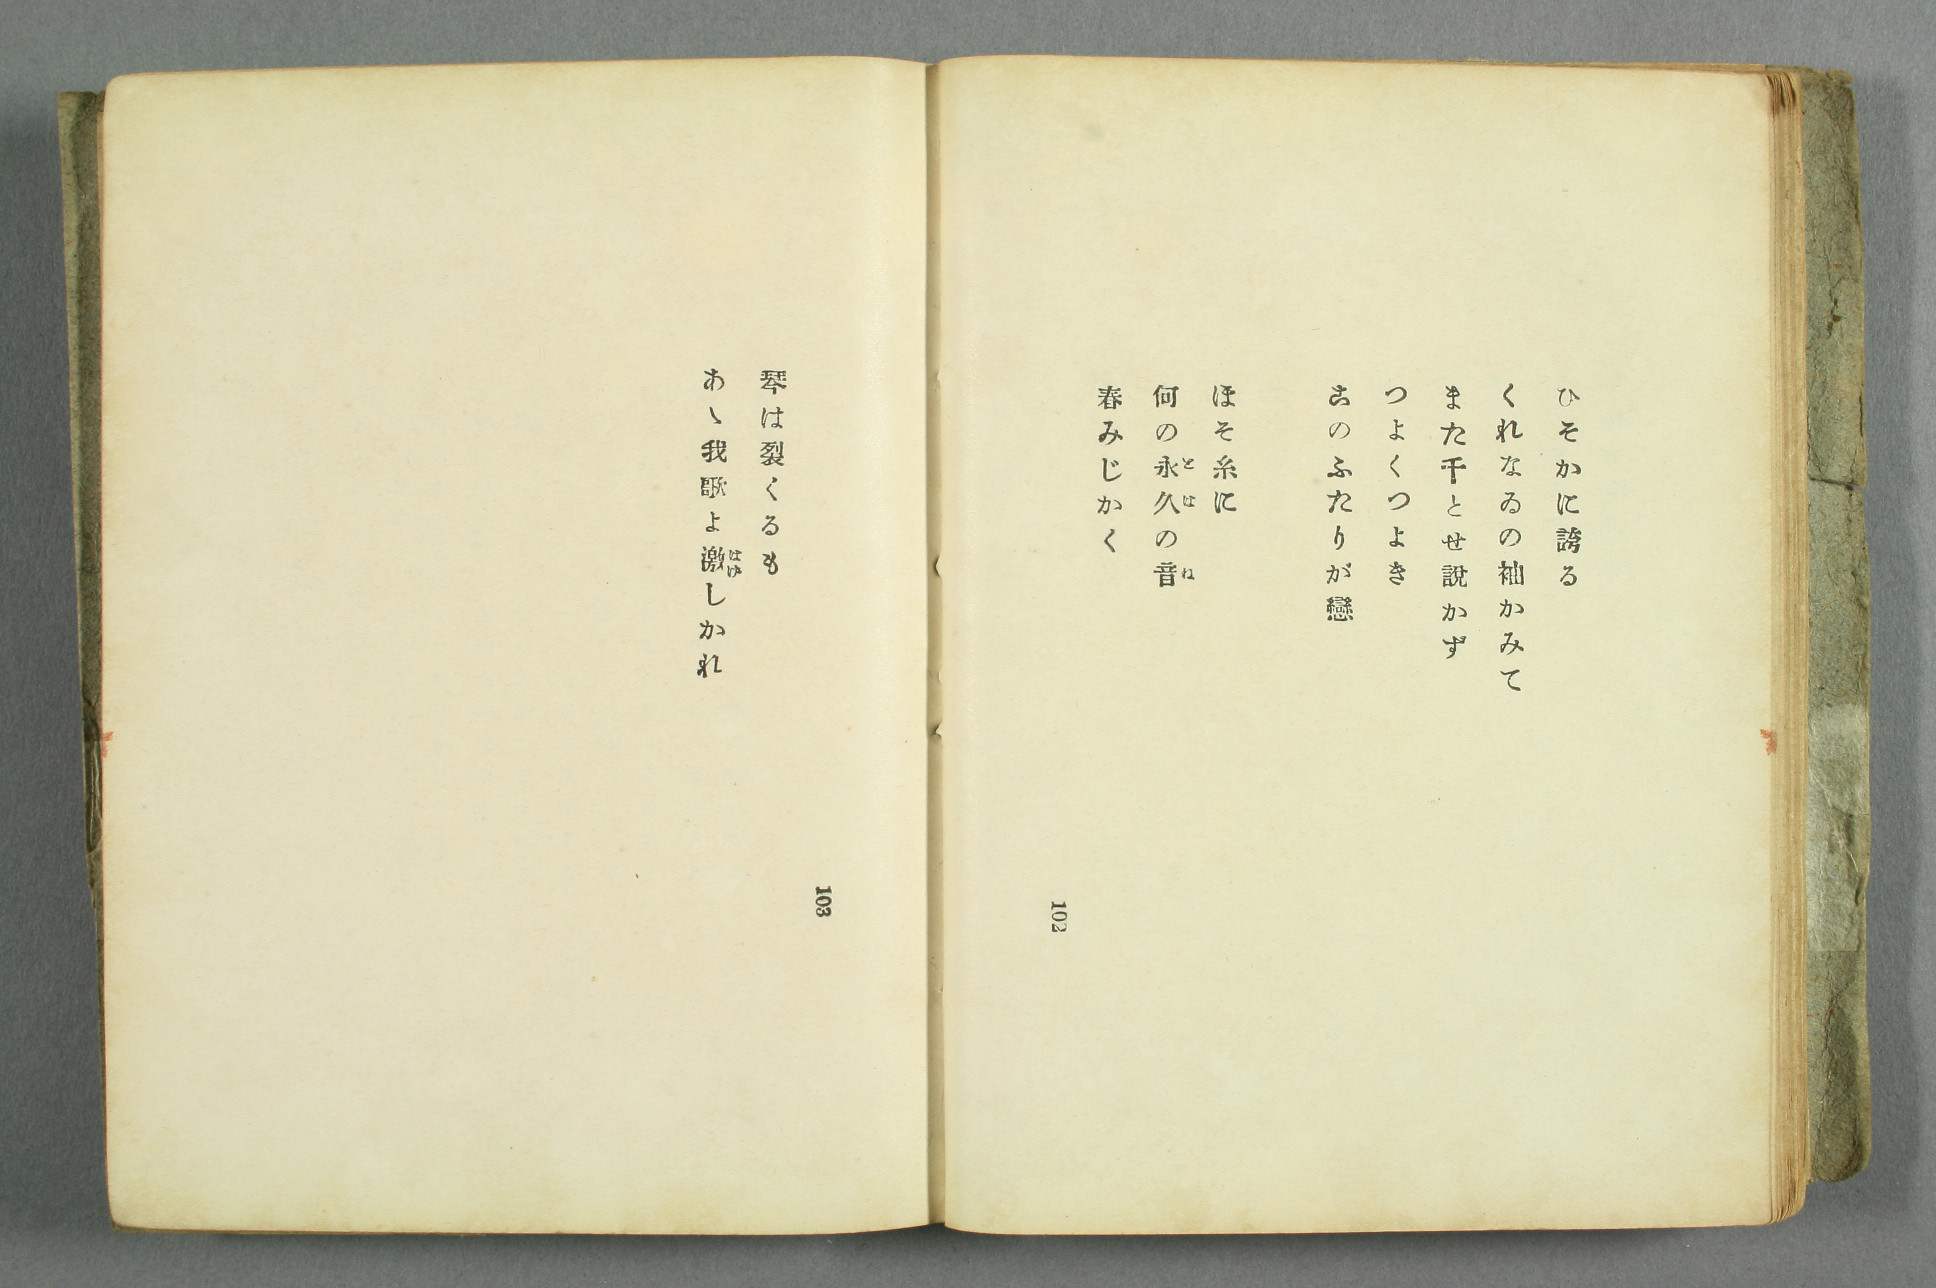 ひそかに誇る
くれなゐの袖かみて
また千とせ説かず
つよくつよき
このふたりが戀
ほそ糸に
何の永久の音
とは
ね
春みじかく
102
琴は裂くるも
あゝ我歌よ激しかれ
はげ
103